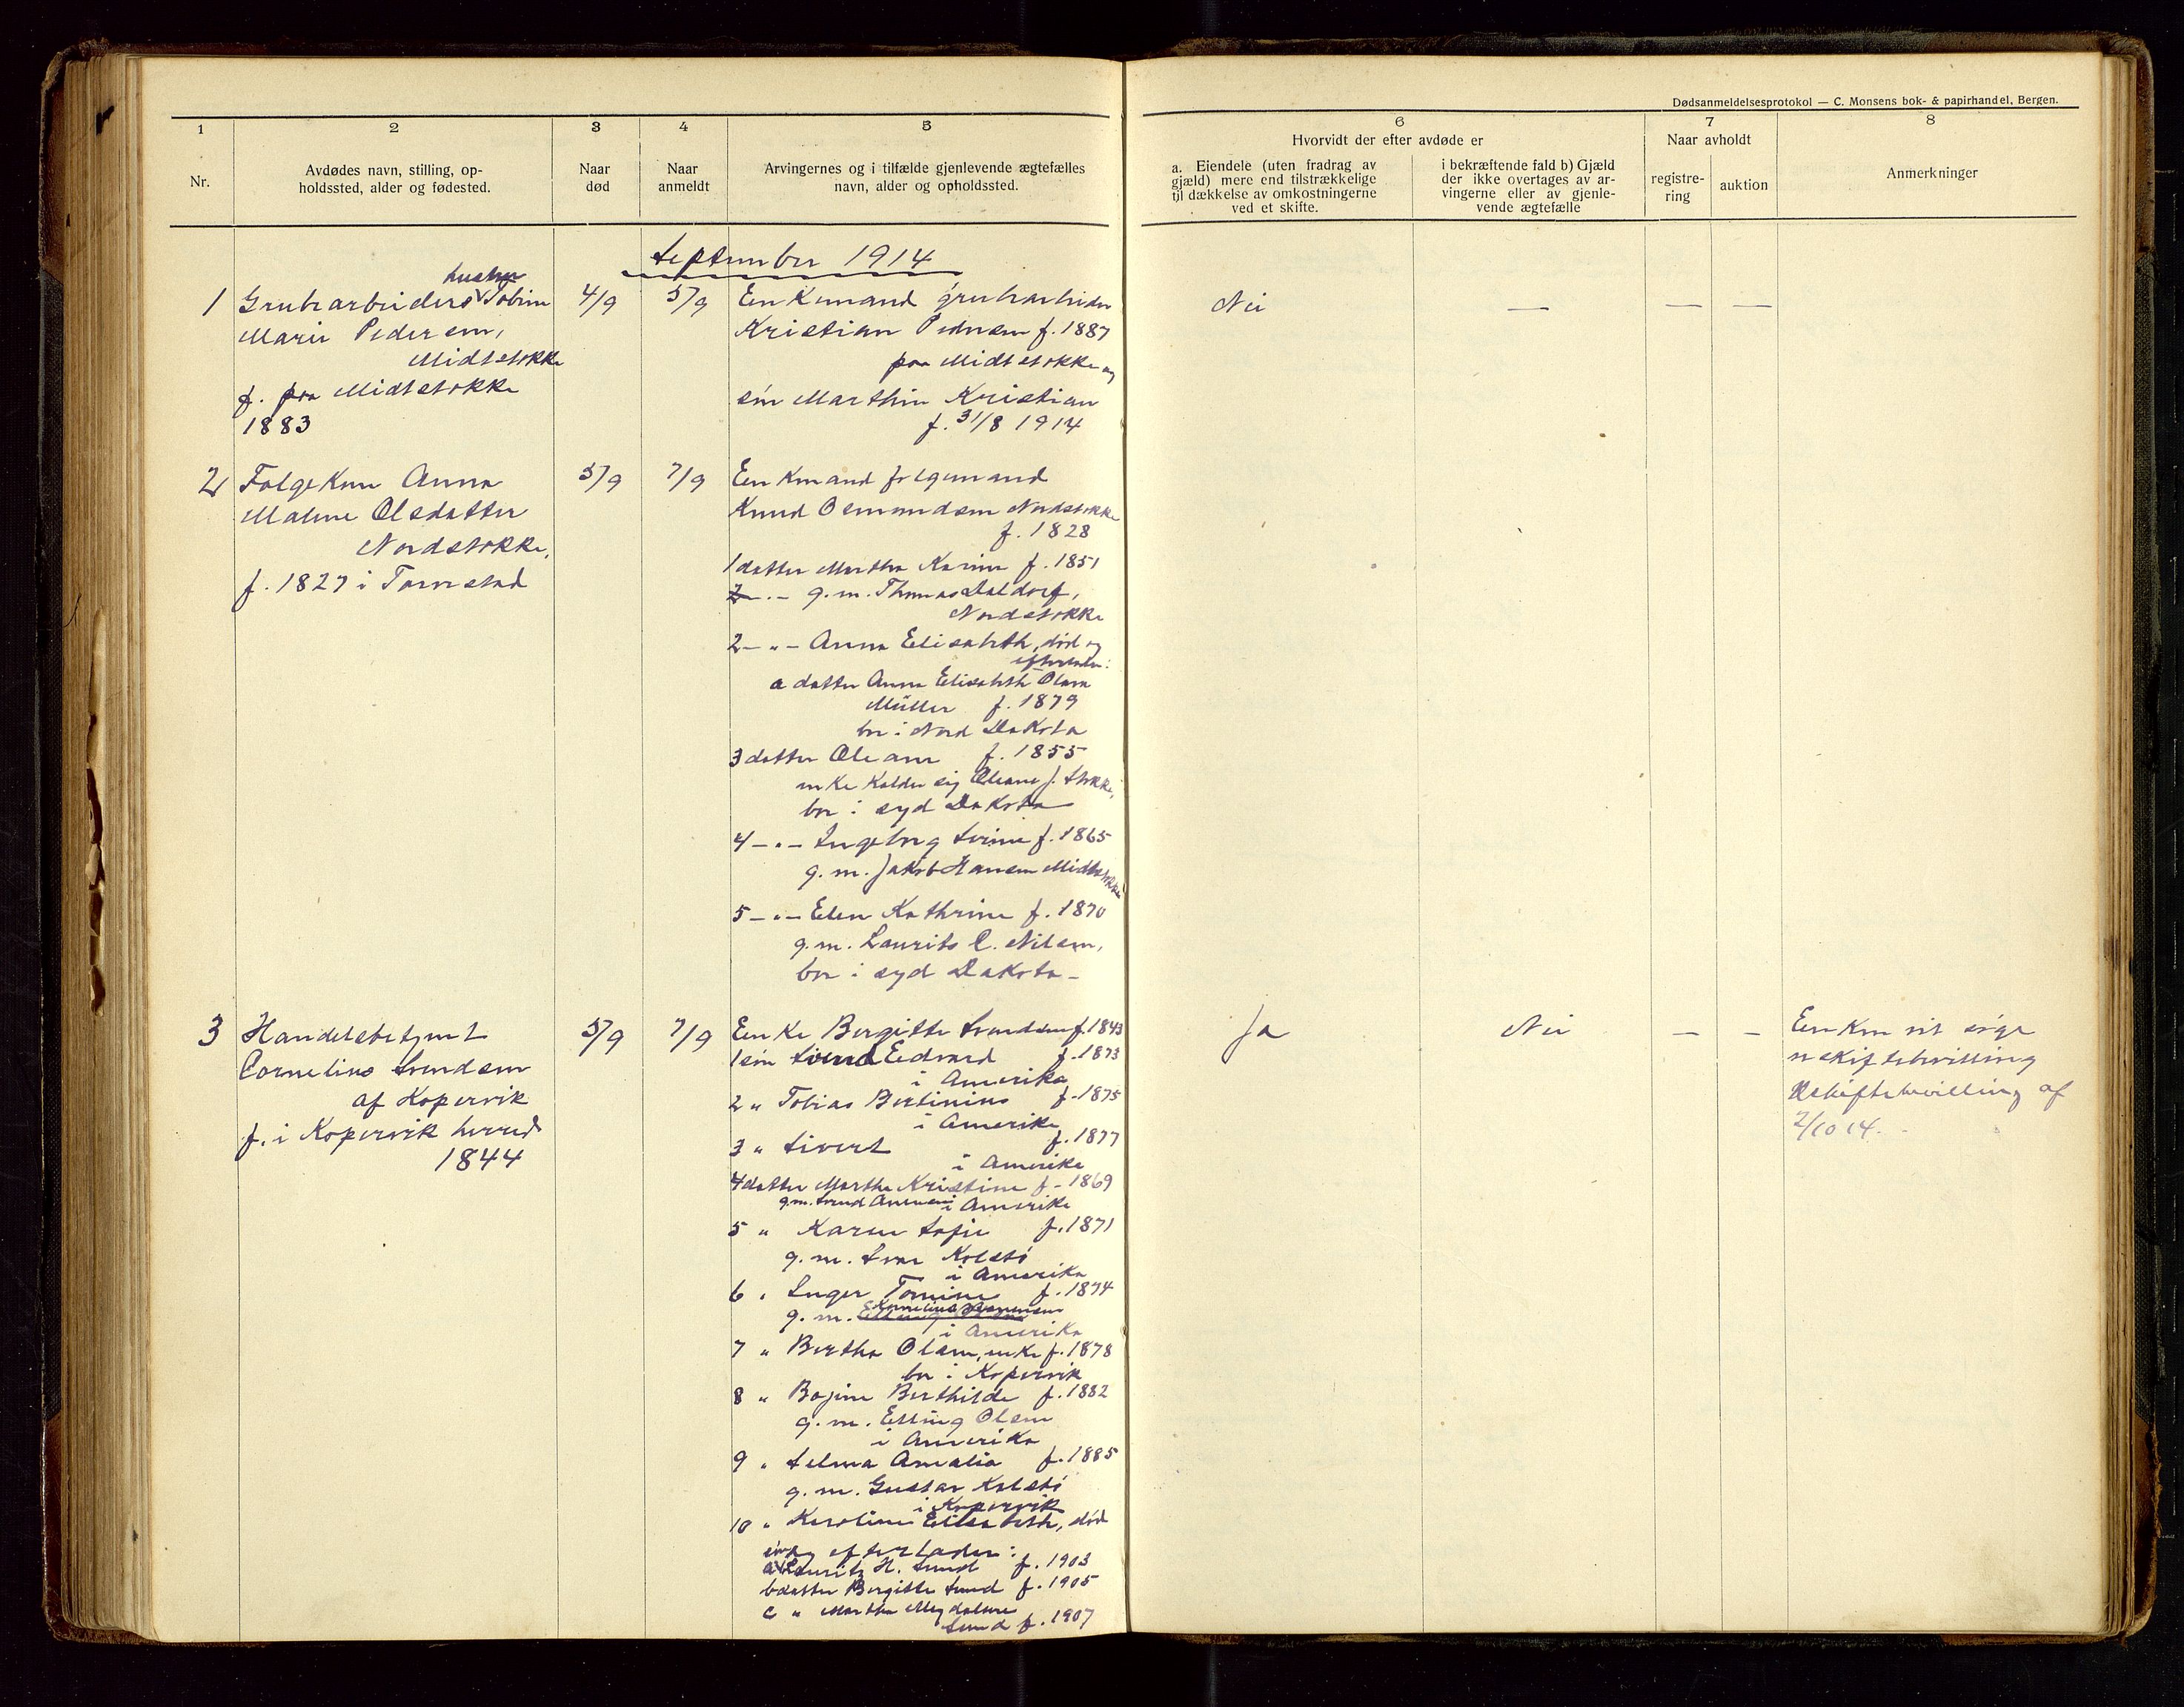 Dødsanmeldelsesprotokol — C. Monsens bok- & papirhandel, Bergen.
1
2
3
4
5
6
7
8
Nr.
Avdødes navn, stilling, op-
holdssted, alder og fødested.
Naar
død
Naar
anmeldt
Arvingernes og i tilfælde gjenlevende ægtefælles
navn, alder og opholdssted.
Hvorvidt der efter avdøde er
a. Eiendele (uten fradrag av
gjæld) mere end tilstrækkelige
til dækkelse av omkostningerne
ved et skifte.
i bekræftende fald b) Gjæld
der ikke overtages av ar-
vingerne eller av gjenle-
vende ægtefælle
Naar avholdt
registre-
ring
auktion
Anmerkninger
September 1914
hustru
1 Grubearbeiders Tobine
Marie Pedersen,
Midtstokke
f. paa Midtstokke
1883
4/9
5/9
Enkemand grubearbeider
Kristian Pedersen f. 1887
paa Midtstokke og
søn Marthin Kristian
f. 31/8 1914
Nei
—
—
—
2 Folgekone Anna
Malene Olsdatter
Nordstokke,
f. 1827 i Tornestad
5/9
7/9
Enkemand folgemand
Knud Osmundsen Nordstokke
f. 1828
1 datter Martha Karine f. 1851
g. m. Thomas Daldorf,
Nordstokke
2 - " - Anna Elisabeth, død og
efterlader:
a datter Anna Elisabeth Olava
Müller f. 1879
bor i Nord Dakota
3 datter Oleane f. 1855
enke kalder sig Oleane J. Stokke,
bor i syd Dakota
4 - " - Ingeborg Serine f. 1865
g. m. Jakob Hansen Midtstokke
5 - " - Elen Kathrine f. 1870
g. m. Laurits C. Nilsen,
bor i syd Dakota -
3 Handelsbetjent
Cornelius Svendsen
af Kopervik
f. i Kopervik herred
1844
5/9
7/9
Enke Bergitte Svendsen f. 1843
1 søn Svend Edvard f. 1873
i Amerika
2 " Tobias Bertinius f. 1875
i Amerika
3 " Sivert f. 1877
i Amerika
4 datter Marthe Kristine f. 1869
g. m. Svend i Amerika
5 " Karen Sofie f. 1871
g. m. Ivar Kolstø
i Amerika
6 " Inger Tomine f. 1874
g. m. Kornelius
i Amerika
7 " Bertha Olsen, enke f. 1878
bor i Kopervik
8 " Bojine Berthilde f. 1882
g. m. Elling Olsen
i Amerika
9 " Selma Amalia f. 1885
g. m. Gustav Kolstø
i Kopervik
10 " Karoline Elisabeth, død
og efterlader:
a søn Lauritz H. Lund f. 1903
b datter Bergitte Lund f. 1905
c " Martha Magdalene
Lund f. 1907
Ja
Nei
—
—
Enken vil søge
uskiftebevilling
Uskiftebevilling af
2/10 14.